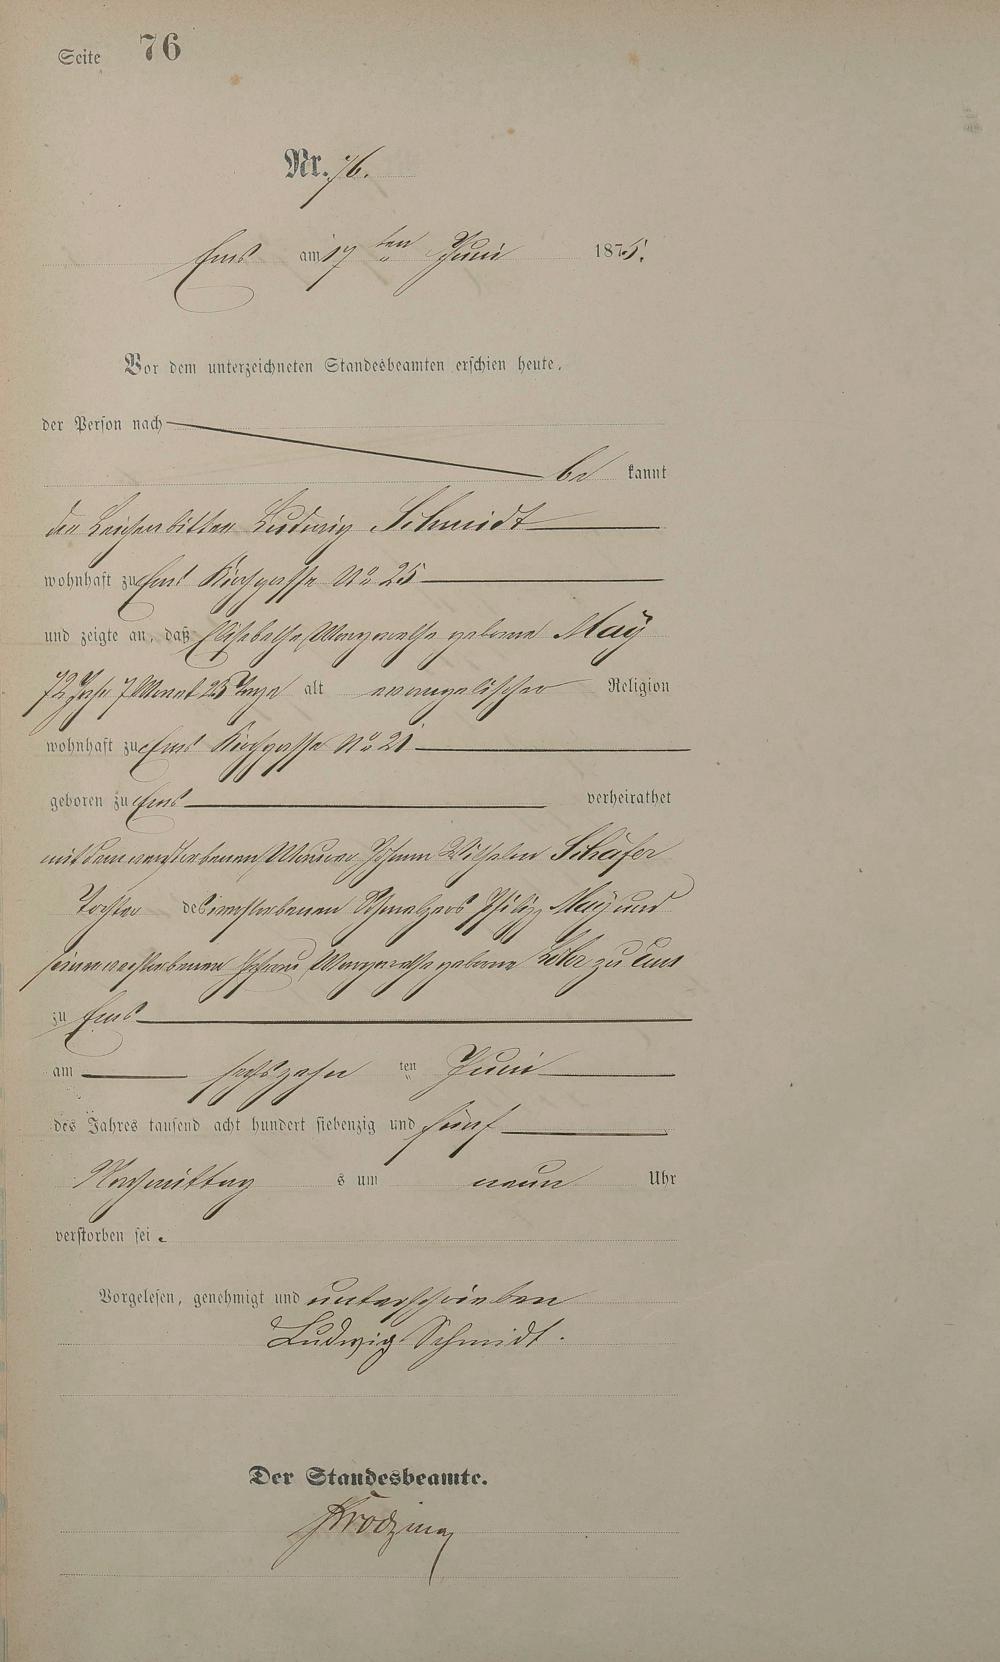 Seite 76
Nr. 76.
Ems am 17 ten Juni 1875.
Vor dem unterzeichneten Standesbeamten erschien heute,
der Person nach
be kannt
der Leichenbitter Ludwig Schmidt
wohnhaft zu Ems Kirchgasse No 25
und zeigte an, daß Elisabethe Margarethe geborne May
72 Jahr 7 Monat 25 Tage alt evangelischer Religion
wohnhaft zu Ems Kirchgasse No 21
geboren zu Ems verheirathet
mit dem verstorbenen Maurer Johann Wilhelm Schäfer
Tochter des verstorbenen Philipp May und
seiner verstorbenen Ehefrau Margarethe geborne zu Ems
zu Ems
am sechszehn ten Juni
des Jahres tausend acht hundert siebenzig und fünf
Nachmittag s um neun Uhr
verstorben sei.
Vorgelesen, genehmigt und unterschrieben
Ludwig Schmidt.
Der Standesbeamte.